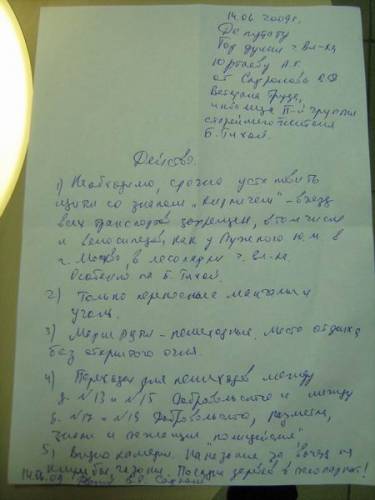 14.06.2009г.
Депутату
Гор думы г. Вл-ка
Юртаеву А.Г.
от Сафронова В.Ф
Ветерана Труда,
инвалида II-й группы
старейшего жителя
Б.Тихой.
Действо.
1) Необходимо, срочно установить
щиты со знаком "кирпичем" - въезд
всех транспортов запрещен, в том числе
и велосипедов, как у Лужкого Ю.М. в
г. Москве, в лесопарк г. Вл-ка.
Особенно на Б. Тихой.
2) Только переносные мангалы и
уголь.
3) - пешеходные. Место отдыха
без открытого огня.
4) Переходы для пешеходов между
д. №13 и №15 Добровольского и между
д. №17 и №19 Добровольского, разметка,
знаки и "полицейские"
5) Видио камеры. Наказание за въезд на
клумбы, газоны. Посадки деревьев в лесопарке!
14.06.09 В.Ф.